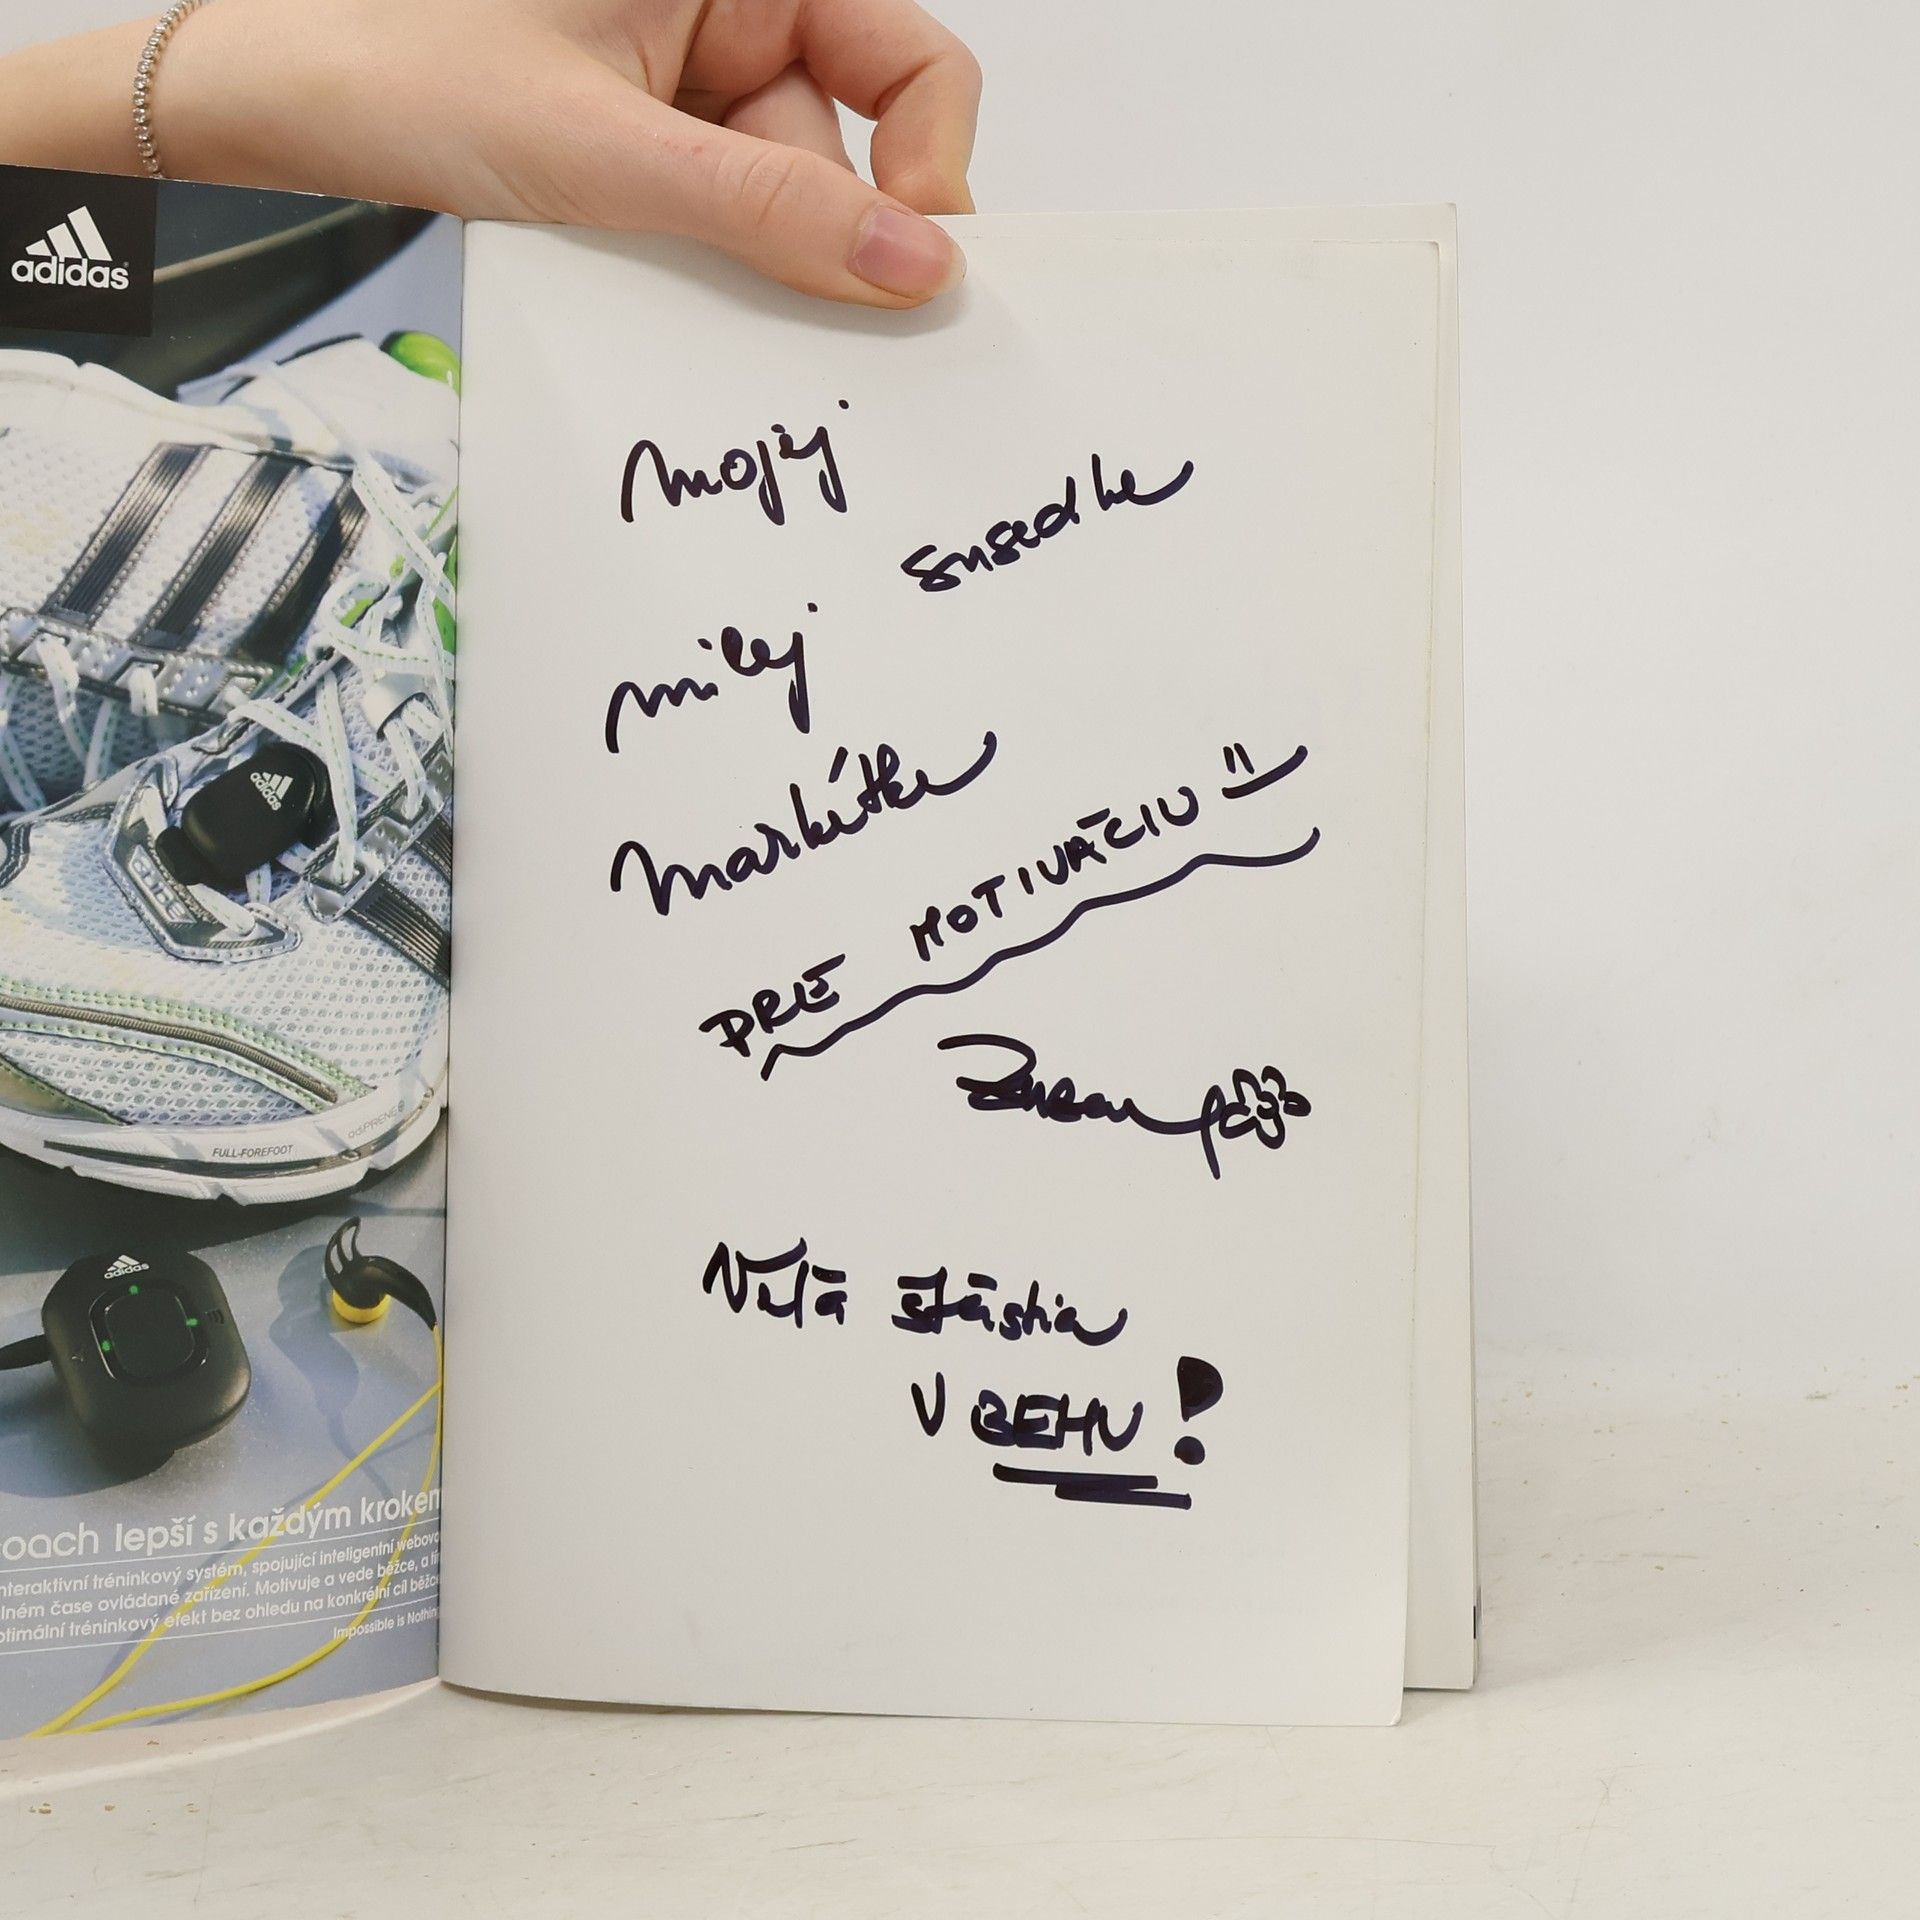 adidas
adidas
adidas
FULL-FOREFOOT
adiPRENE
oach lepší s každým krokem
nteraktivní tréninkový systém, spojující inteligentní webovo
lném čase ovládané zařízení. Motivuje a vede běžce, a tí
ptimální tréninkový efekt bez ohledu na konkrétní cíl běžce
Impossible is Nothin
Mojej
susedke
milej
Markétke
PRE MOTIVÁCIU
Veľa šťastia
V BEHU!